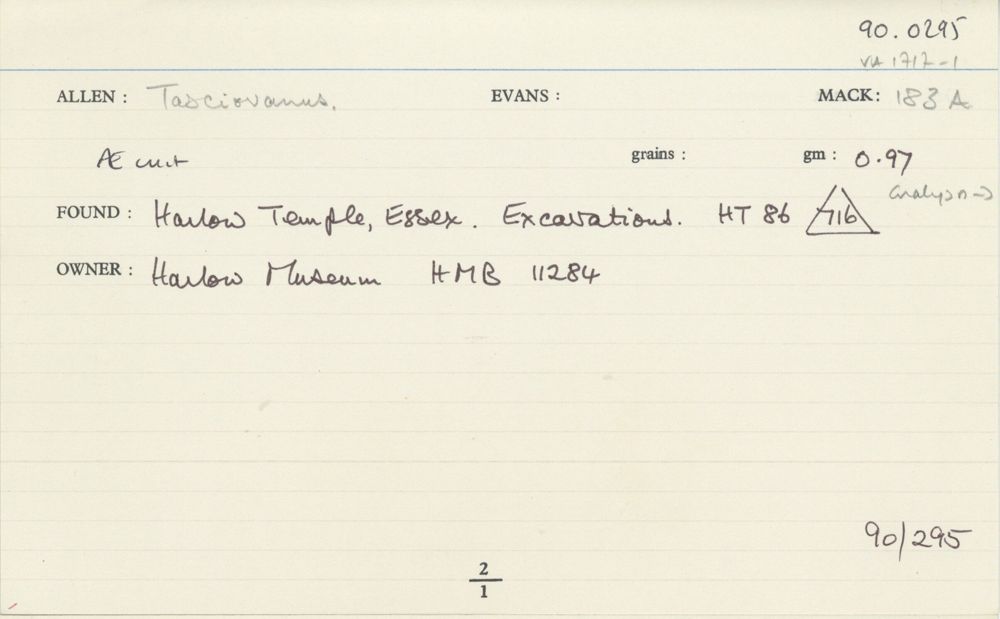 90.0295
VA 1717-1
ALLEN : Tasciovanus. EVANS : MACK: 183 A
Æ unit grains : gm : 0.97
analysis →
FOUND : Harlow Temple, Essex. Excavations. HT 86 716
OWNER : Harlow Museum HMB 11284
90/295
2
1